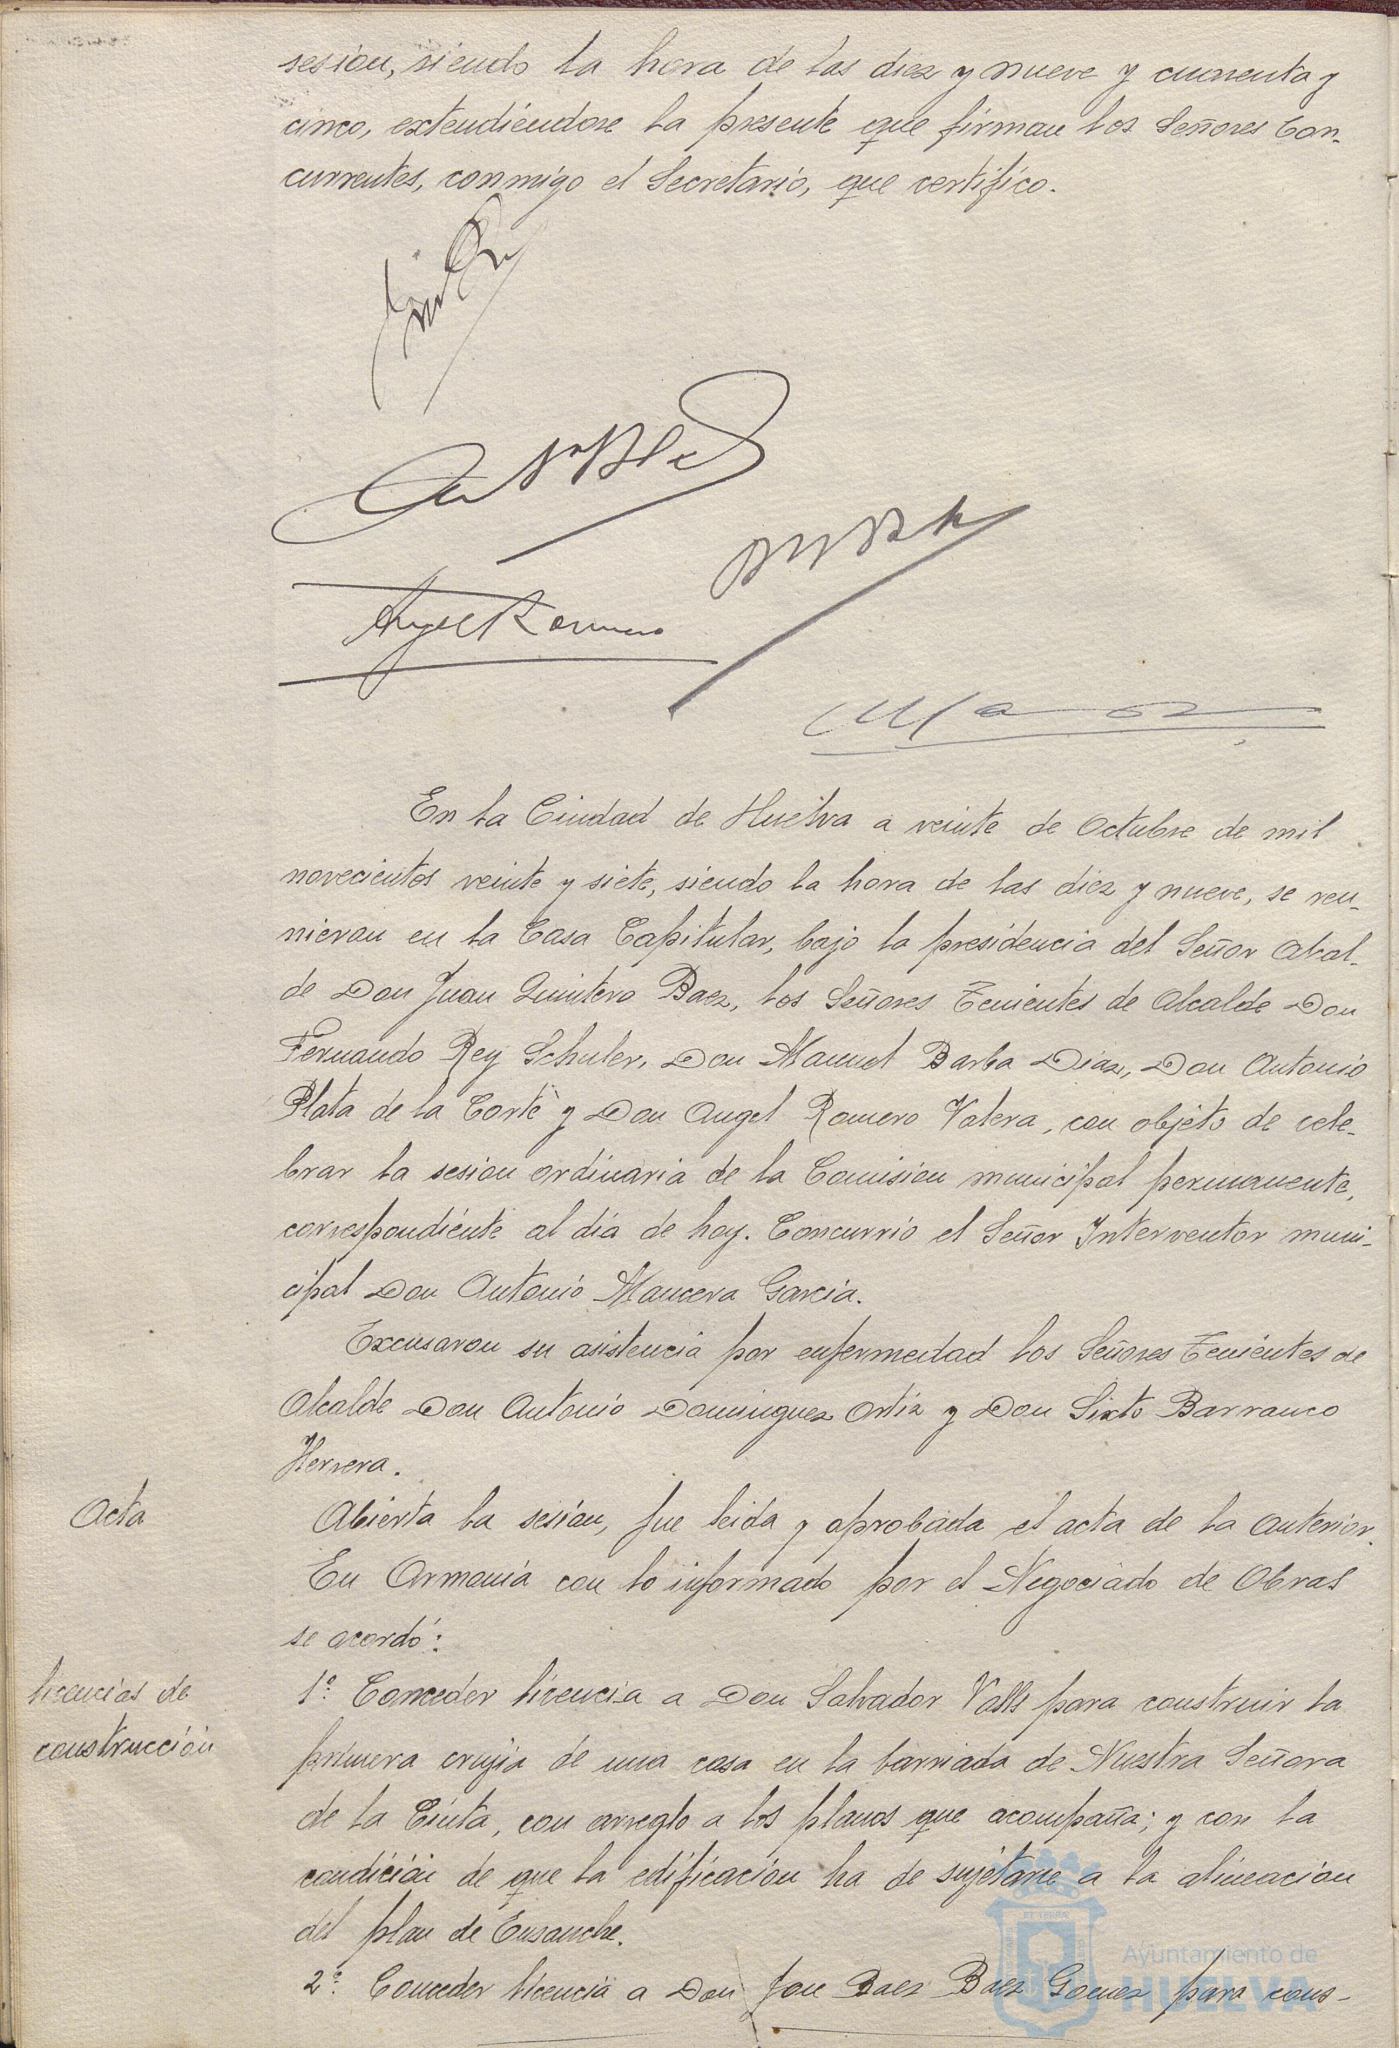 sesión, siendo la hora de las diez y nueve y cuarenta y
cinco, extendiéndose la presente que firman los Señores Con-
currentes, conmigo el Secretario, que certifico.
Angel Romero
En la Ciudad de Huelva a veinte de Octubre de mil
novecientos veinte y siete, siendo la hora de las diez y nueve, se reu-
nieron en la Casa Capitular, bajo la presidencia del Señor Alcal-
de Don Juan Quintero Baez, los Señores Tenientes de Alcalde Don
Fernando Rey Schuler, Don Manuel Barba Diaz, Don Antonio
Plata de la Corte y Don Angel Romero Valera, con objeto de cele-
brar la sesion ordinaria de la Comision municipal permanente,
correspondiente al dia de hoy. Concurrió el Señor Interventor muni-
cipal Don Antonio Mancera Garcia.
Excusaron su asistencia por enfermedad los Señores Tenientes de
Alcalde Don Antonio Dominguez Ortiz y Don Sixto Barranco
Herrera.
Acta
Abierta la sesión, fue leida y aprobada el acta de la anterior.
En Armonia con lo informado por el Negociado de Obras
se acordó:
licencias de
construcción
1º. Conceder licencia a Don Salvador Valls para construir la
primera crujia de una casa en la barriada de Nuestra Señora
de la Cinta, con arreglo a los planos que acompaña; y con la
condición de que la edificación ha de sujetarse a la alineacion
del plan de Ensanche.
2º. Conceder licencia a Don Jose Baez Baez Gomez para cons-
Ayuntamiento de
HUELVA